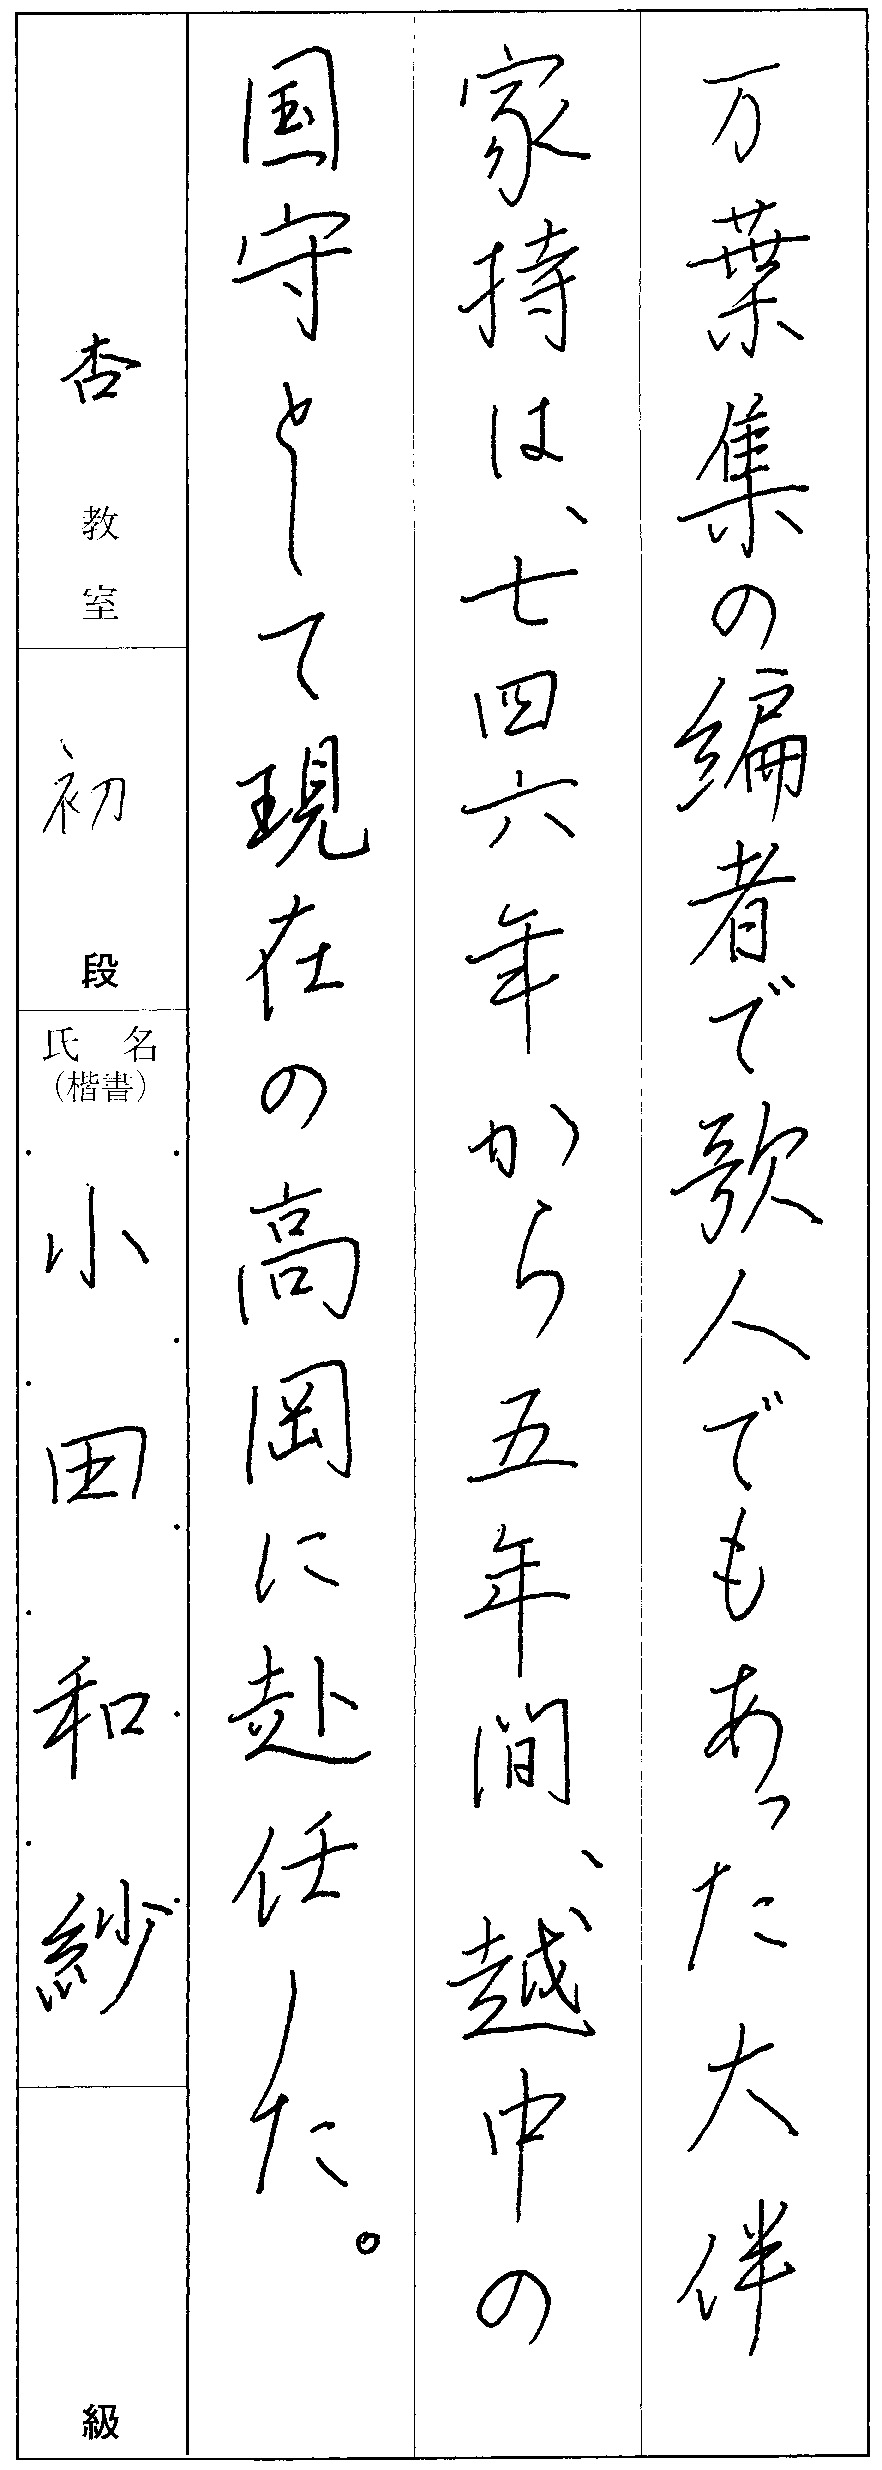 万葉集の編者で歌人でもあった大伴
家持は、七四六年から五年間、越中の
国守として現在の高岡に赴任した。
杏教室
初段
氏名
（楷書）
小田和紗
級